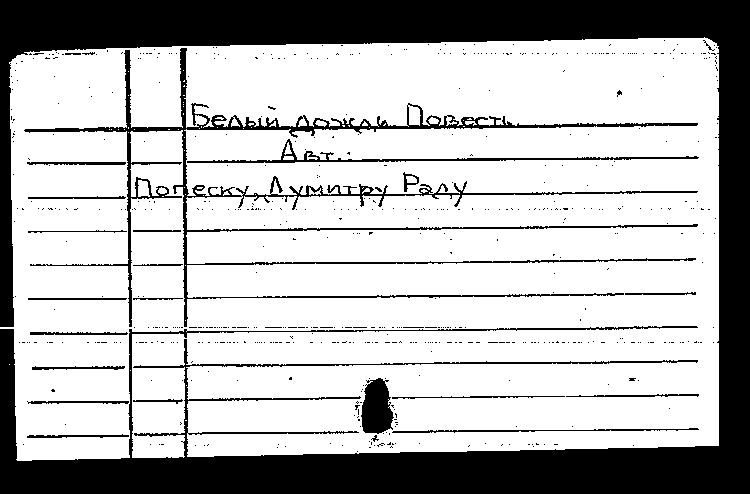 Белый дожди Повесть
Авт.:
Попеску, Думитру Раду